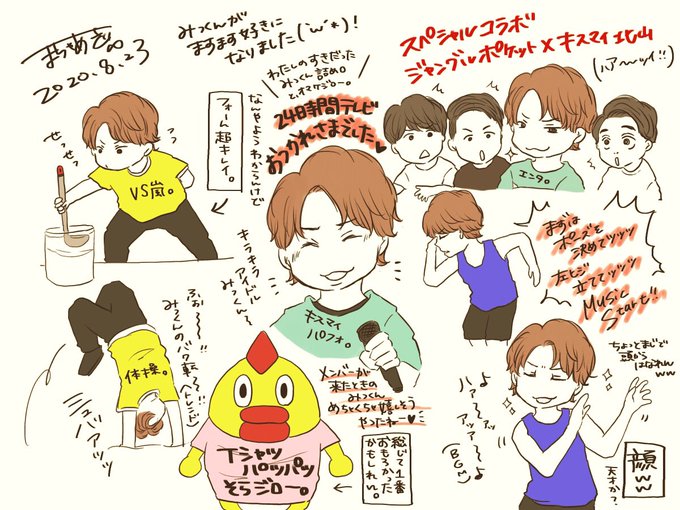 2020.8.23
みっくんが
ますます好きに
なりました(´ω`*)!
わたしのすきだった
みっくん詰め。
と、オマケジロー。
24時間テレビ
おつかれさまでした
スペシャルコラボ
ジャングルポケット×キスマイ北山
(ハァ〜ッイ!!)
エンタ。
せっせっ
VS嵐。
なんやようわからんけど
フォーム超キレイ。
キラキラ
アイドル
みっくん〜
キスマイ
パフォ。
まずは
ポーズを
決めてッッッ
左ヒジ
立ててッッッ
MUSIC
Start!!
ふぉ〜〜〜!!
みっくんのバク転〜!!
体操。
Tシャツ
パッツパツ
そらジロー。
メンバーが
来たときの
みっくん
めちゃくちゃ嬉しそう
やったねー
総じて1番
おもろかった
かもしれん。
ハァ〜ァ〜
アッァ〜〜
(BGM)
ちょっとまじで
頭から
はなれん
ww
顔ww
天才か?